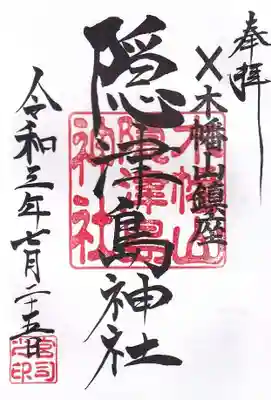 奉拝
木幡山鎮座
隠津島神社
令和三年七月二十五日
木幡山
隠津島
神社
宮司之印